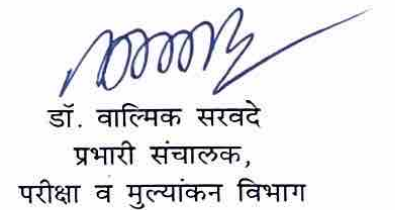 डॉ. वाल्मिक सरवदे
प्रभारी संचालक,
परीक्षा व मुल्यांकन विभाग